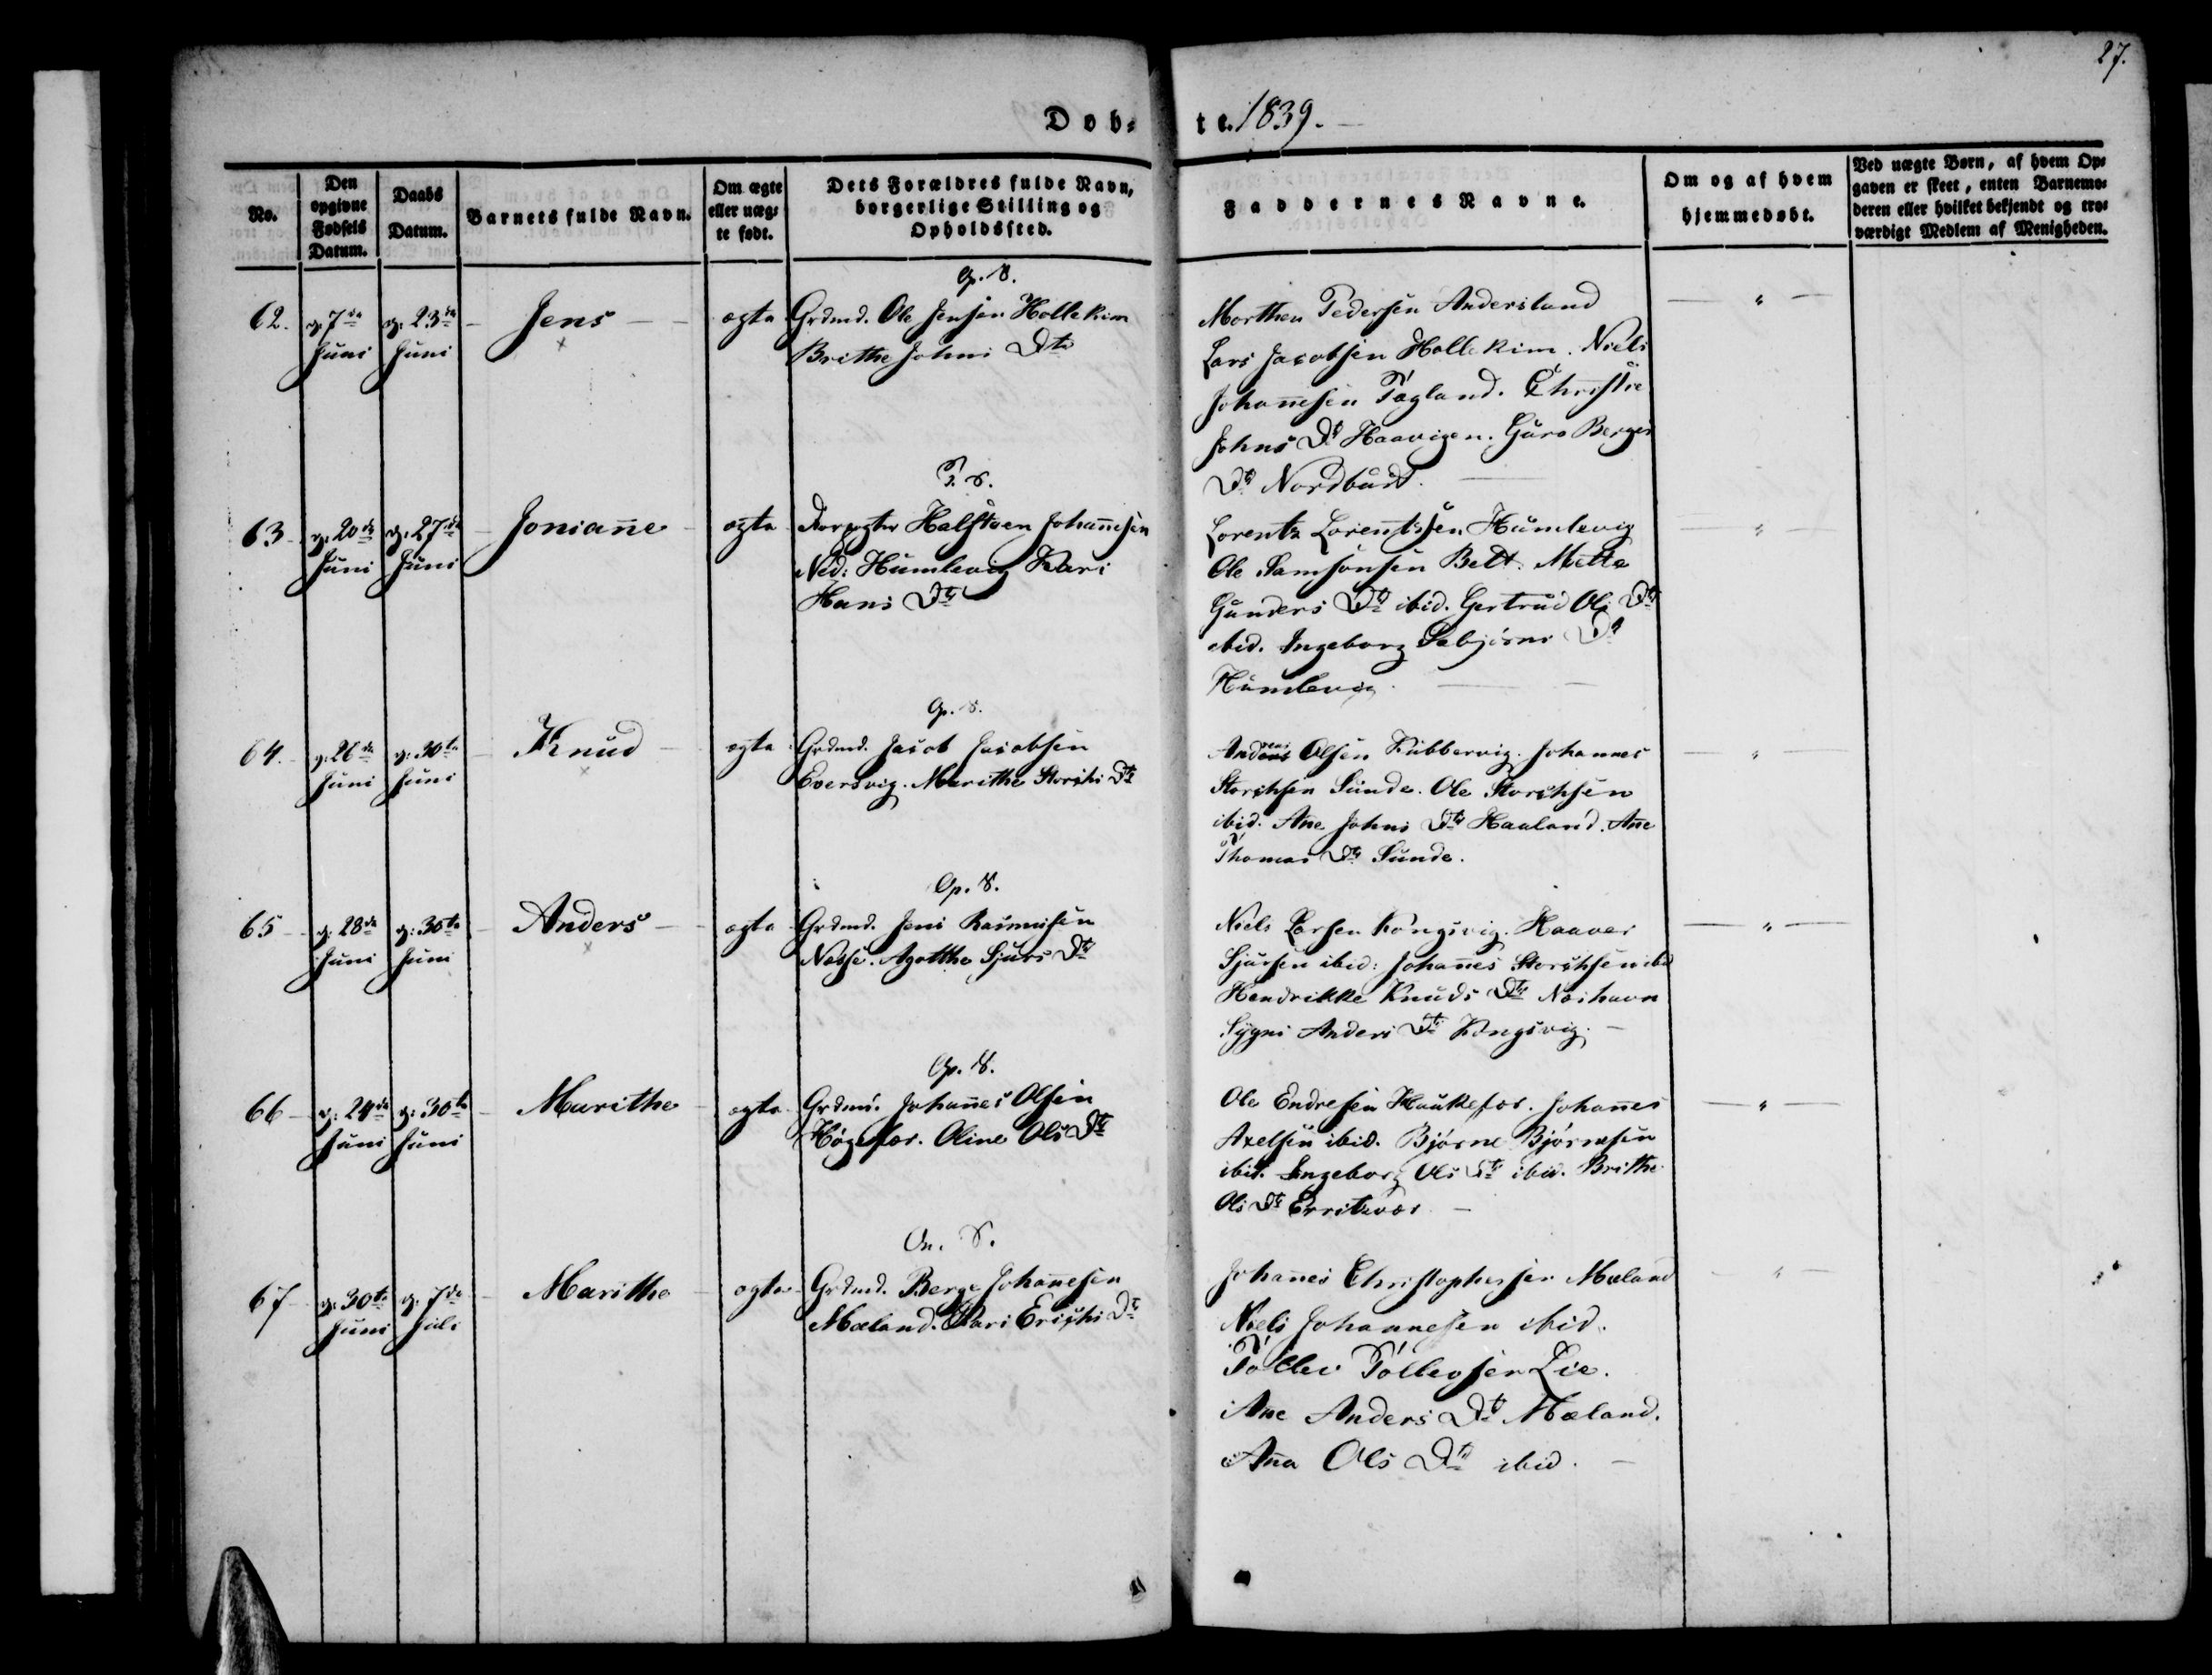 27.
Døb-
te. 1839.
No.
Den opgivne Fødsels Datum.
Daabs Datum.
Barnets fulde Navn.
Om ægte eller uægte født.
Dets Forældres fulde Navn, borgerlige Stilling og Opholdssted.
Faddernes Navne.
Om og af hvem hjemmedøbt.
Ved uægte Børn, af hvem Opgaven er skeet, enten Barnemoderen eller hvilket bekjendt og troværdigt Medlem af Menigheden.
62. d. 7de Juni d. 23de Juni Jens ægte
Grdmd. Ole Jensen Hollekim
Brithe Johns Dtr
Morthen Pedersen Andersland
Lars Jacobsen Hollekim. Niels
Johannesen Tøgland. Christie
Johns Dtr Haavigen. Guro Berges
Dtr Nordbust.
63 d. 20de Juni d. 27de Juni Joniañe ægte
Halsteen Johañesen
Ned: Humlevig Kari
Hans Dtr
Lorentz Lorentssen Humlevig
Ole Samsonsen Belt. Mette
Gunders Dtr ibid. Gertrud Ols Dtr
ibid. Ingeborg Sebjørns Dtr
Humlevig.
64. d. 26de Juni d. 30te Juni Knud ægte
Grdmd. Jacob Jacobsen
Eversvig. Marithe Storchs Dtr
Olsen Kubbervig. Johannes
Storchsen Sunde. Ole Storchsen
ibid. Añe Johns Dtr Haaland. Añe
Thomas Dtr Sunde.
65 d. 28de Juni d. 30te Juni Anders ægte
Grdmd. Jens Rasmusen
Nesse. Agatthe Sjurs Dtr
Niels Larsen Kongsvig. Haaver
Sjursen ibid: Johañes Storchsen ibid
Hendrikke Knuds Dtr Neshavn
Sygni Anders Dtr Kongsvig.
66 d. 24de Juni d. 30te Juni Marithe ægte
Grdmd. Johañes Olsen
Høgefor. Oline Ols Dtr
Ole Endresen Haukefor. Johañes
Axelsen ibid. Bjørne Bjørnesen
ibid. Ingeborg Ols Dtr ibid. Brithe
Ols Dtr
67 d. 30te Juni d. 7de Juli Marithe ægte
Grdmd. Berge Johañesen
Mæland. Kari Erichs Dtr
Johañes Christophersen Mæland
Niels Johannesen ibid.
Tollev Tollevsen Lie.
Ane Anders Dtr Mæland.
Aña Ols Dtr ibid.